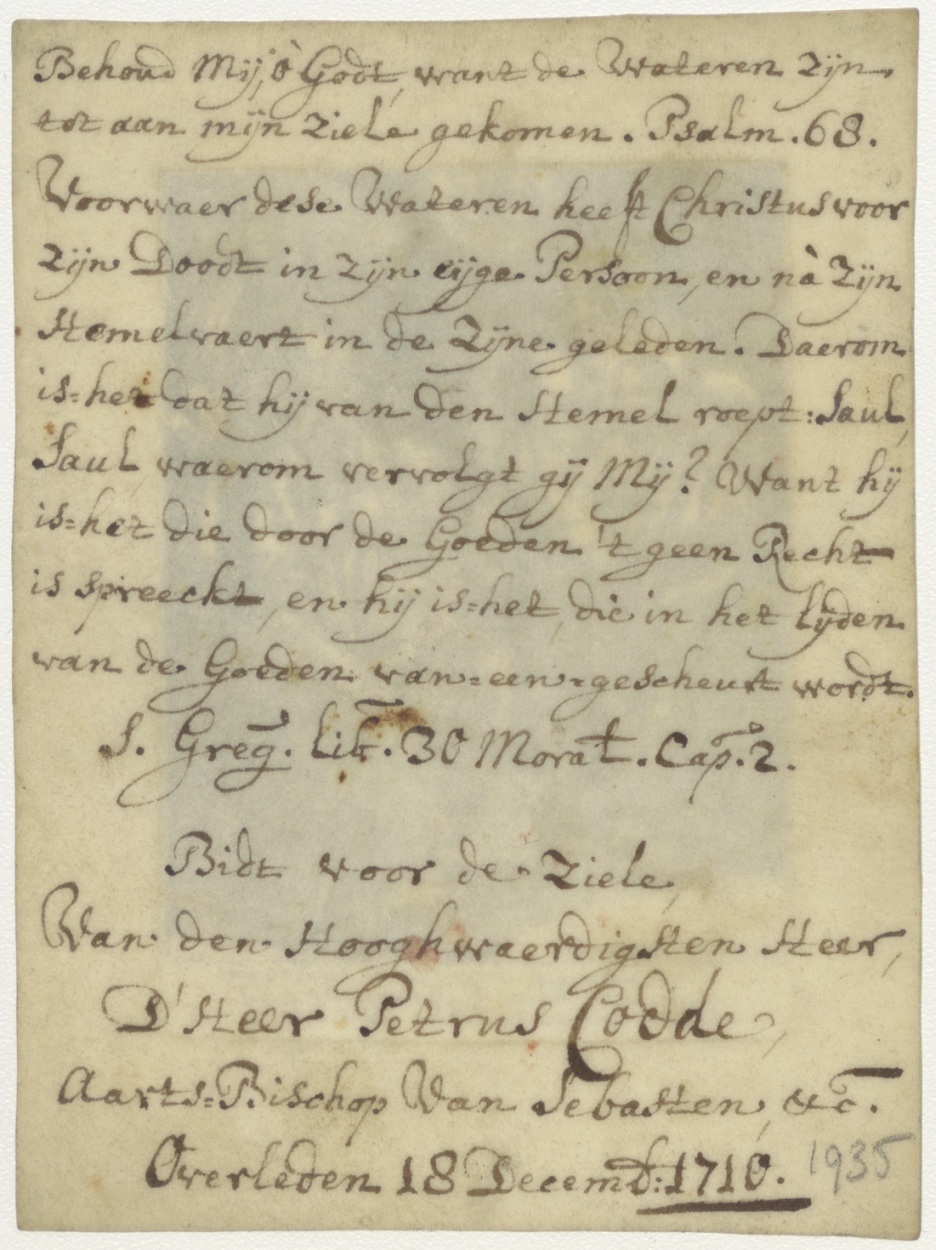 Behoud Mij, ô Godt, want de Wateren zijn
tot aan mijn ziele gekomen. Psalm. 68.
Voorwaer dese Wateren heeft Christus voor
zijn Doodt in zijn eijge Persoon, en nà zijn
Hemelvaert in de Zijne geleden. Daerom
is=het dat hij van den Hemel roept: Saul,
Saul waerom vervolgt gij Mij? Want hij
is=het die door de Goeden 't geen Recht
is spreeckt, en hij is=het, die in het lijden
van de Goeden van=een=gescheurt wordt.
S. Greg. lib. 30 Moral. Cap. 2.
Bidt voor de Ziele,
Van den Hooghwaerdigsten Heer,
D'Heer Petrus Codde,
Aarts=Bischop Van Sebasten, &c.
Overleden 18 Decemb: 1710. 1935